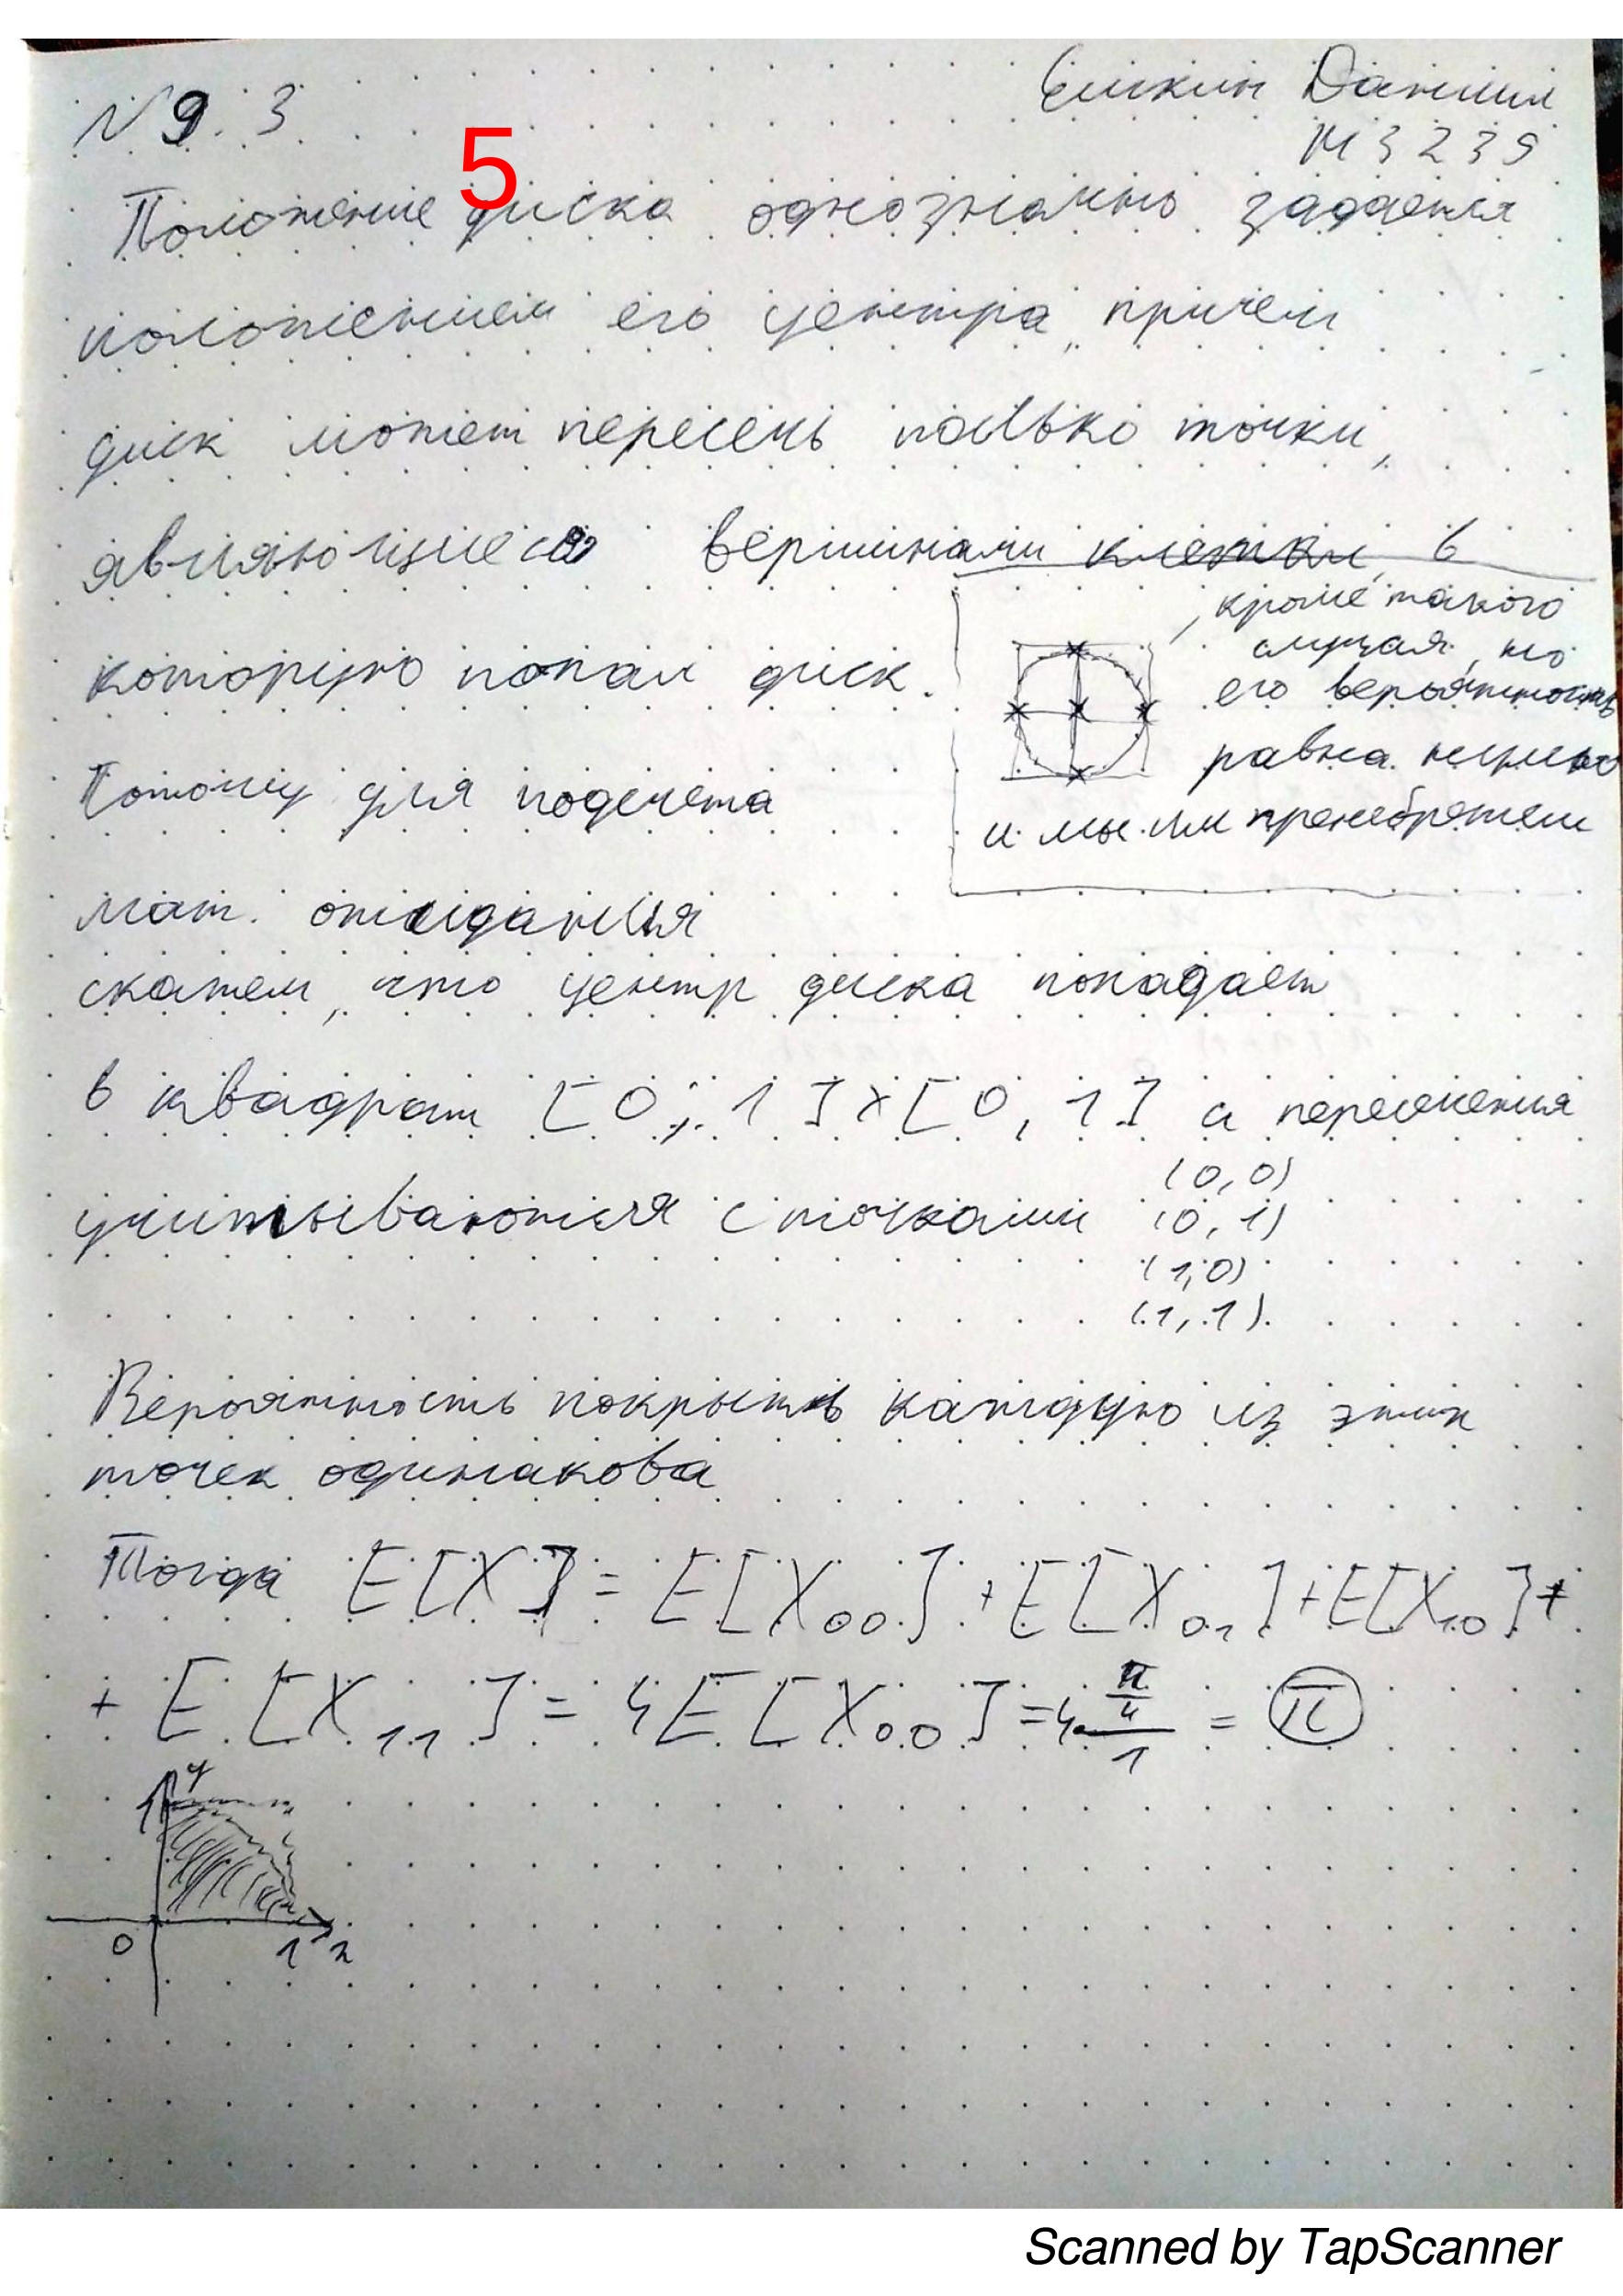 N 9. 3
Ешкин Даниил
M3239
5
Положение диска однозначно задаётся
положением его центра, причем
диск может пересечь только точки,
являющиеся вершинами клетки, в
которую попал диск.
, кроме такого
случая, но
его вероятность
равна нулю
и мы им пренебрежем
Потому для подсчета
мат. ожидания
скажем, что центр диска попадает
в квадрат [0; 1]×[0, 1] а пересечения
учитываются с точками
(0,0)
(0,1)
(1,0)
(1,1).
Вероятность покрыть каждую из этих
точек одинакова
Тогда E[X] = E[X₀₀] + E[X₀₁] + E[X₁₀] +
+ E[X₁₁] = 4E[X₀₀] = 4·(π/4)/1 = π
y
1
0
1
x
Scanned by TapScanner